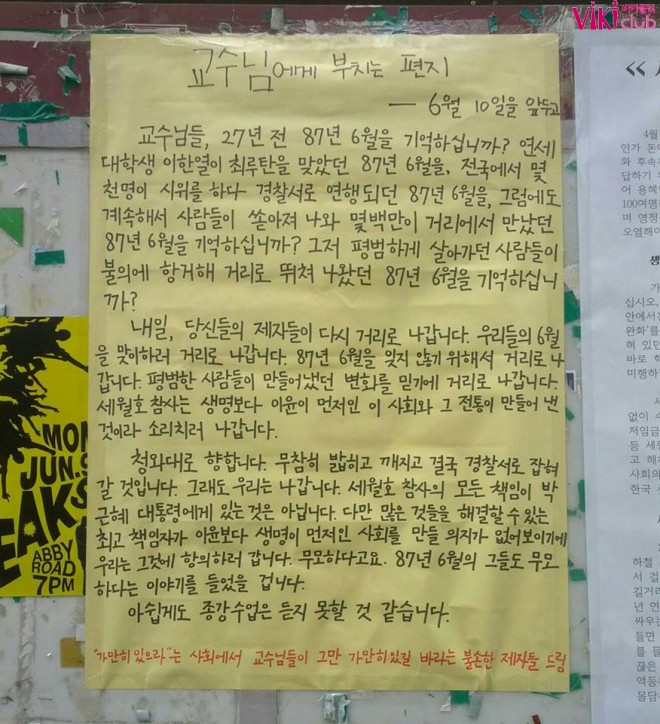 비키클럽
Viki club
교수님에게 부치는 편지
— 6월 10일을 앞두고
교수님들, 27년 전 87년 6월을 기억하십니까? 연세
대학생 이한열이 최루탄을 맞았던 87년 6월을, 전국에서 몇
천명이 시위를 하다 경찰서로 연행되던 87년 6월을, 그럼에도
계속해서 사람들이 쏟아져 나와 몇백만이 거리에서 만났던
87년 6월을 기억하십니까? 그저 평범하게 살아가던 사람들이
불의에 항거해 거리로 뛰쳐 나왔던 87년 6월을 기억하십니
까?
내일, 당신들의 제자들이 다시 거리로 나갑니다. 우리들의 6월
을 맞이하러 거리로 나갑니다. 87년 6월을 잊지 않기 위해서 거리로 나
갑니다. 평범한 사람들이 만들어냈던 변화를 믿기에 거리로 나갑니다.
세월호 참사는 생명보다 이윤이 먼저인 이 사회와 그 전통이 만들어 낸
것이라 소리치러 나갑니다.
청와대로 향합니다. 무참히 밟히고 깨지고 결국 경찰서로 잡혀
갈 것입니다. 그래도 우리는 나갑니다. 세월호 참사의 모든 책임이 박
근혜 대통령에게 있는 것은 아닙니다. 다만 많은 것들을 해결할 수 있는
최고 책임자가 이윤보다 생명이 먼저인 사회를 만들 의지가 없어보이기에
우리는 그것에 항의하러 갑니다. 무모하다고요. 87년 6월의 그들도 무모
하다는 이야기를 들었을 겁니다.
아쉽게도 종강수업은 듣지 못할 것 같습니다.
"가만히 있으라"는 사회에서 교수님들이 그만 가만히있길 바라는 불손한 제자들 드림
MON
JUN.9
EAKS
ABBY
ROAD
7PM
4월
인가 돈이
와 후속
답하기 위
어 용혜
100여명
며 영정
오열해야
생
가
십시오,
안에서
완화'를
혀 있던
바로 학
미행하
세
없이 수
저임금
등 세월
고 해
사회의
한국 사
하철
서 길
길거리
년 연
싸우는
들면
를 들
끊은
액등
몸담